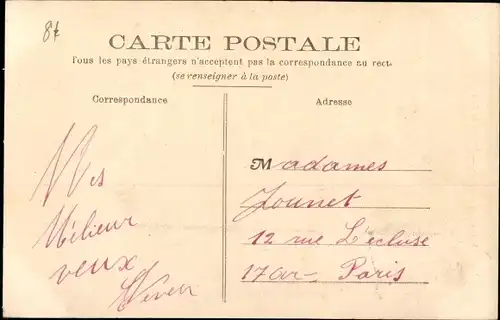 8f
CARTE POSTALE
Tous les pays étrangers n'acceptent pas la correspondance au recto
(se renseigner à la poste)
Correspondance
Adresse
Mes
Mélieur
veux
Madames
Jounet
12 rue L'écluse
17ar- Paris